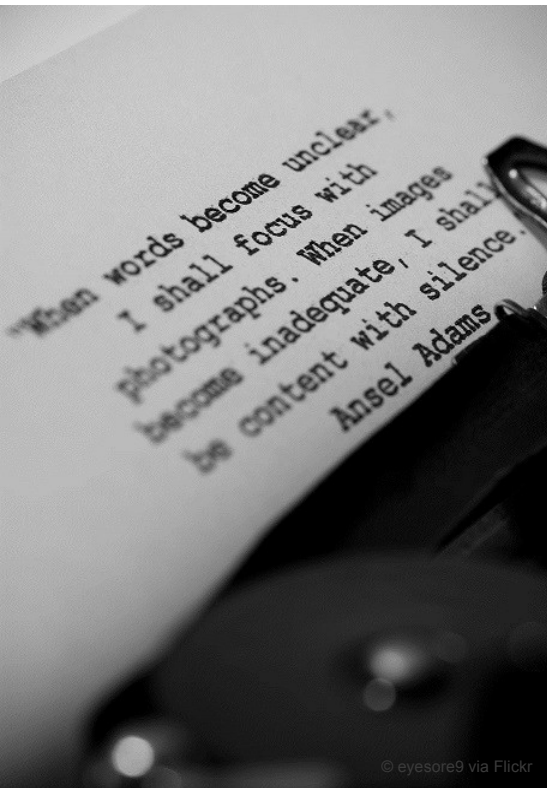 "When words become unclear,
I shall focus with
photographs. When images
become inadequate, I shall
be content with silence.
Ansel Adams
© eyesore9 via Flickr